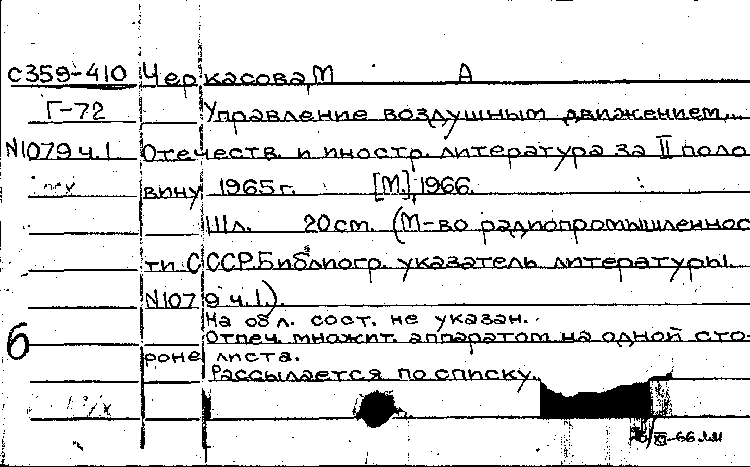 С359-410 Черкасова, М А
Г-72 Управление воздушным движением...
N1079 ч.1 Отечеств. и иностр. литература за II поло
вину 1965 г. [М.], 1966.
111 л. 20 см. (М-во радиопромышленнос
ти СССР. Библиогр. указатель литературы.
N1079 ч.1).
На обл. сост. не указан.
Отпеч. множит. аппаратом на одной сто-
роне листа.
Рассылается по списку.
б
XI-66